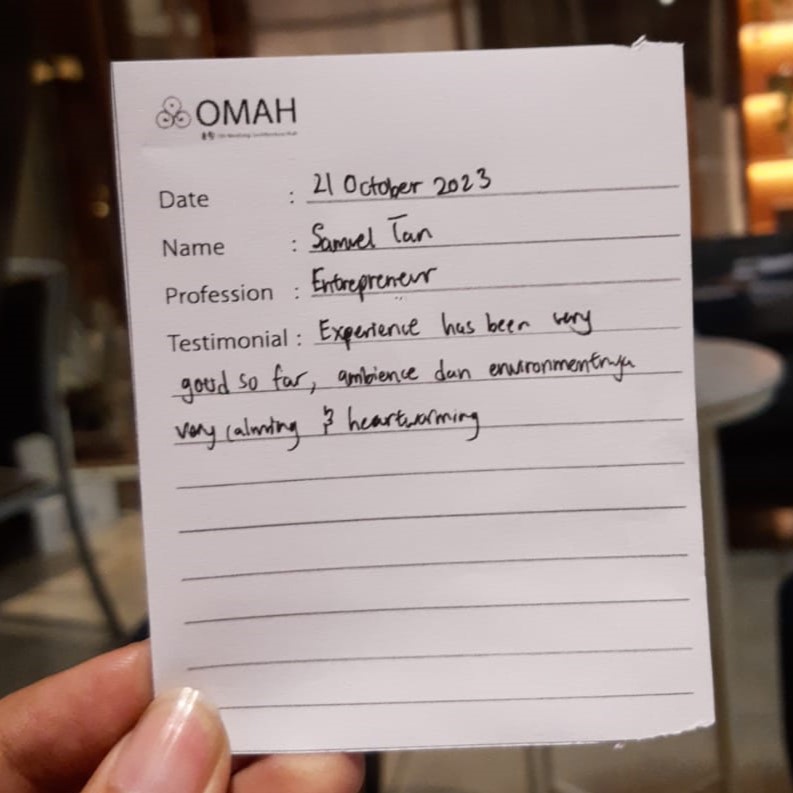 OMAH
Date : 21 October 2023
Name : Samuel Tan
Profession : Entrepreneur
Testimonial : Experience has been very
good so far, ambience dan environmentnya
very calming & heartwarming